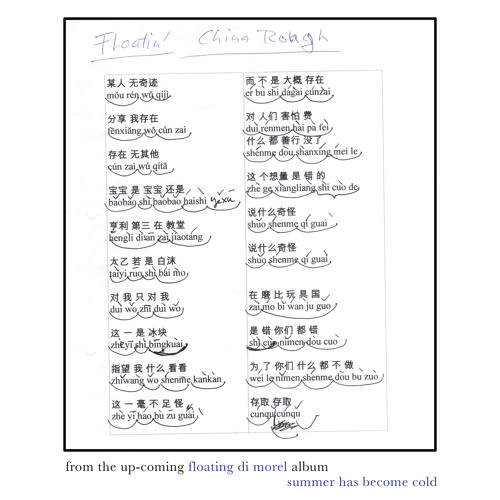 Floatin' China Rough
某人 无奇迹
mǒu rén wú qíjì
分享 我存在
fēnxiǎng wǒ cún zai
存在 无其他
cún zai wú qítā
宝宝 是 宝宝 还是
bǎobǎo shì bǎobǎo háishì yěxǔ
亨利 第三 在 教堂
hengli disan zai jiaotáng
太乙 若 是 白沫
taiyǐ ruo shì bái mo
对 我 只 对 我
duì wǒ zhǐ duì wǒ
这 一 是 冰块
zhè yī shì bingkuai
指望 我 什么 看看
zhǐwàng wǒ shénme kànkàn
这 一 毫 不 足 怪
zhè yī háo bù zú guài
而 不 是 大概 存在
ér bu shi dàgài cúnzài
对 人们 害怕 费
duì rénmen hài pà fèi
什么 都 善行 没了
shénme dou shanxíng méi le
这 个 想量 是 错 的
zhè ge xiangliang shì cuò de
说什么奇怪
shuō shenme qí guài
说什么奇怪
shuō shenme qí guài
在 磨 比 玩 具 国
zai mo bǐ wán ju guo
是 错 你们 都 错
shì cuò nǐmen dōu cuò
为 了 你们 什么 都 不 做
wei le nǐmen shénme dōu bu zuò
存取 存取
cunqu cunqu
from the up-coming floating di morel album
summer has become cold